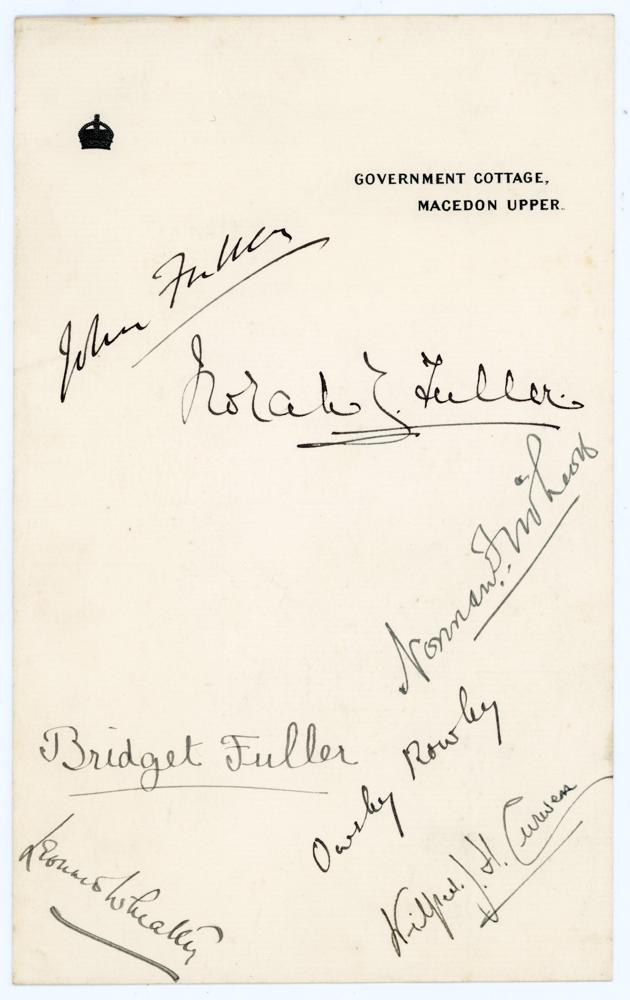 GOVERNMENT COTTAGE,
MACEDON UPPER.
John Fuller
Norah Fuller.
Norman
Bridget Fuller
Rowley
Wilfred J. H. Curwen
Leonard Wheatley